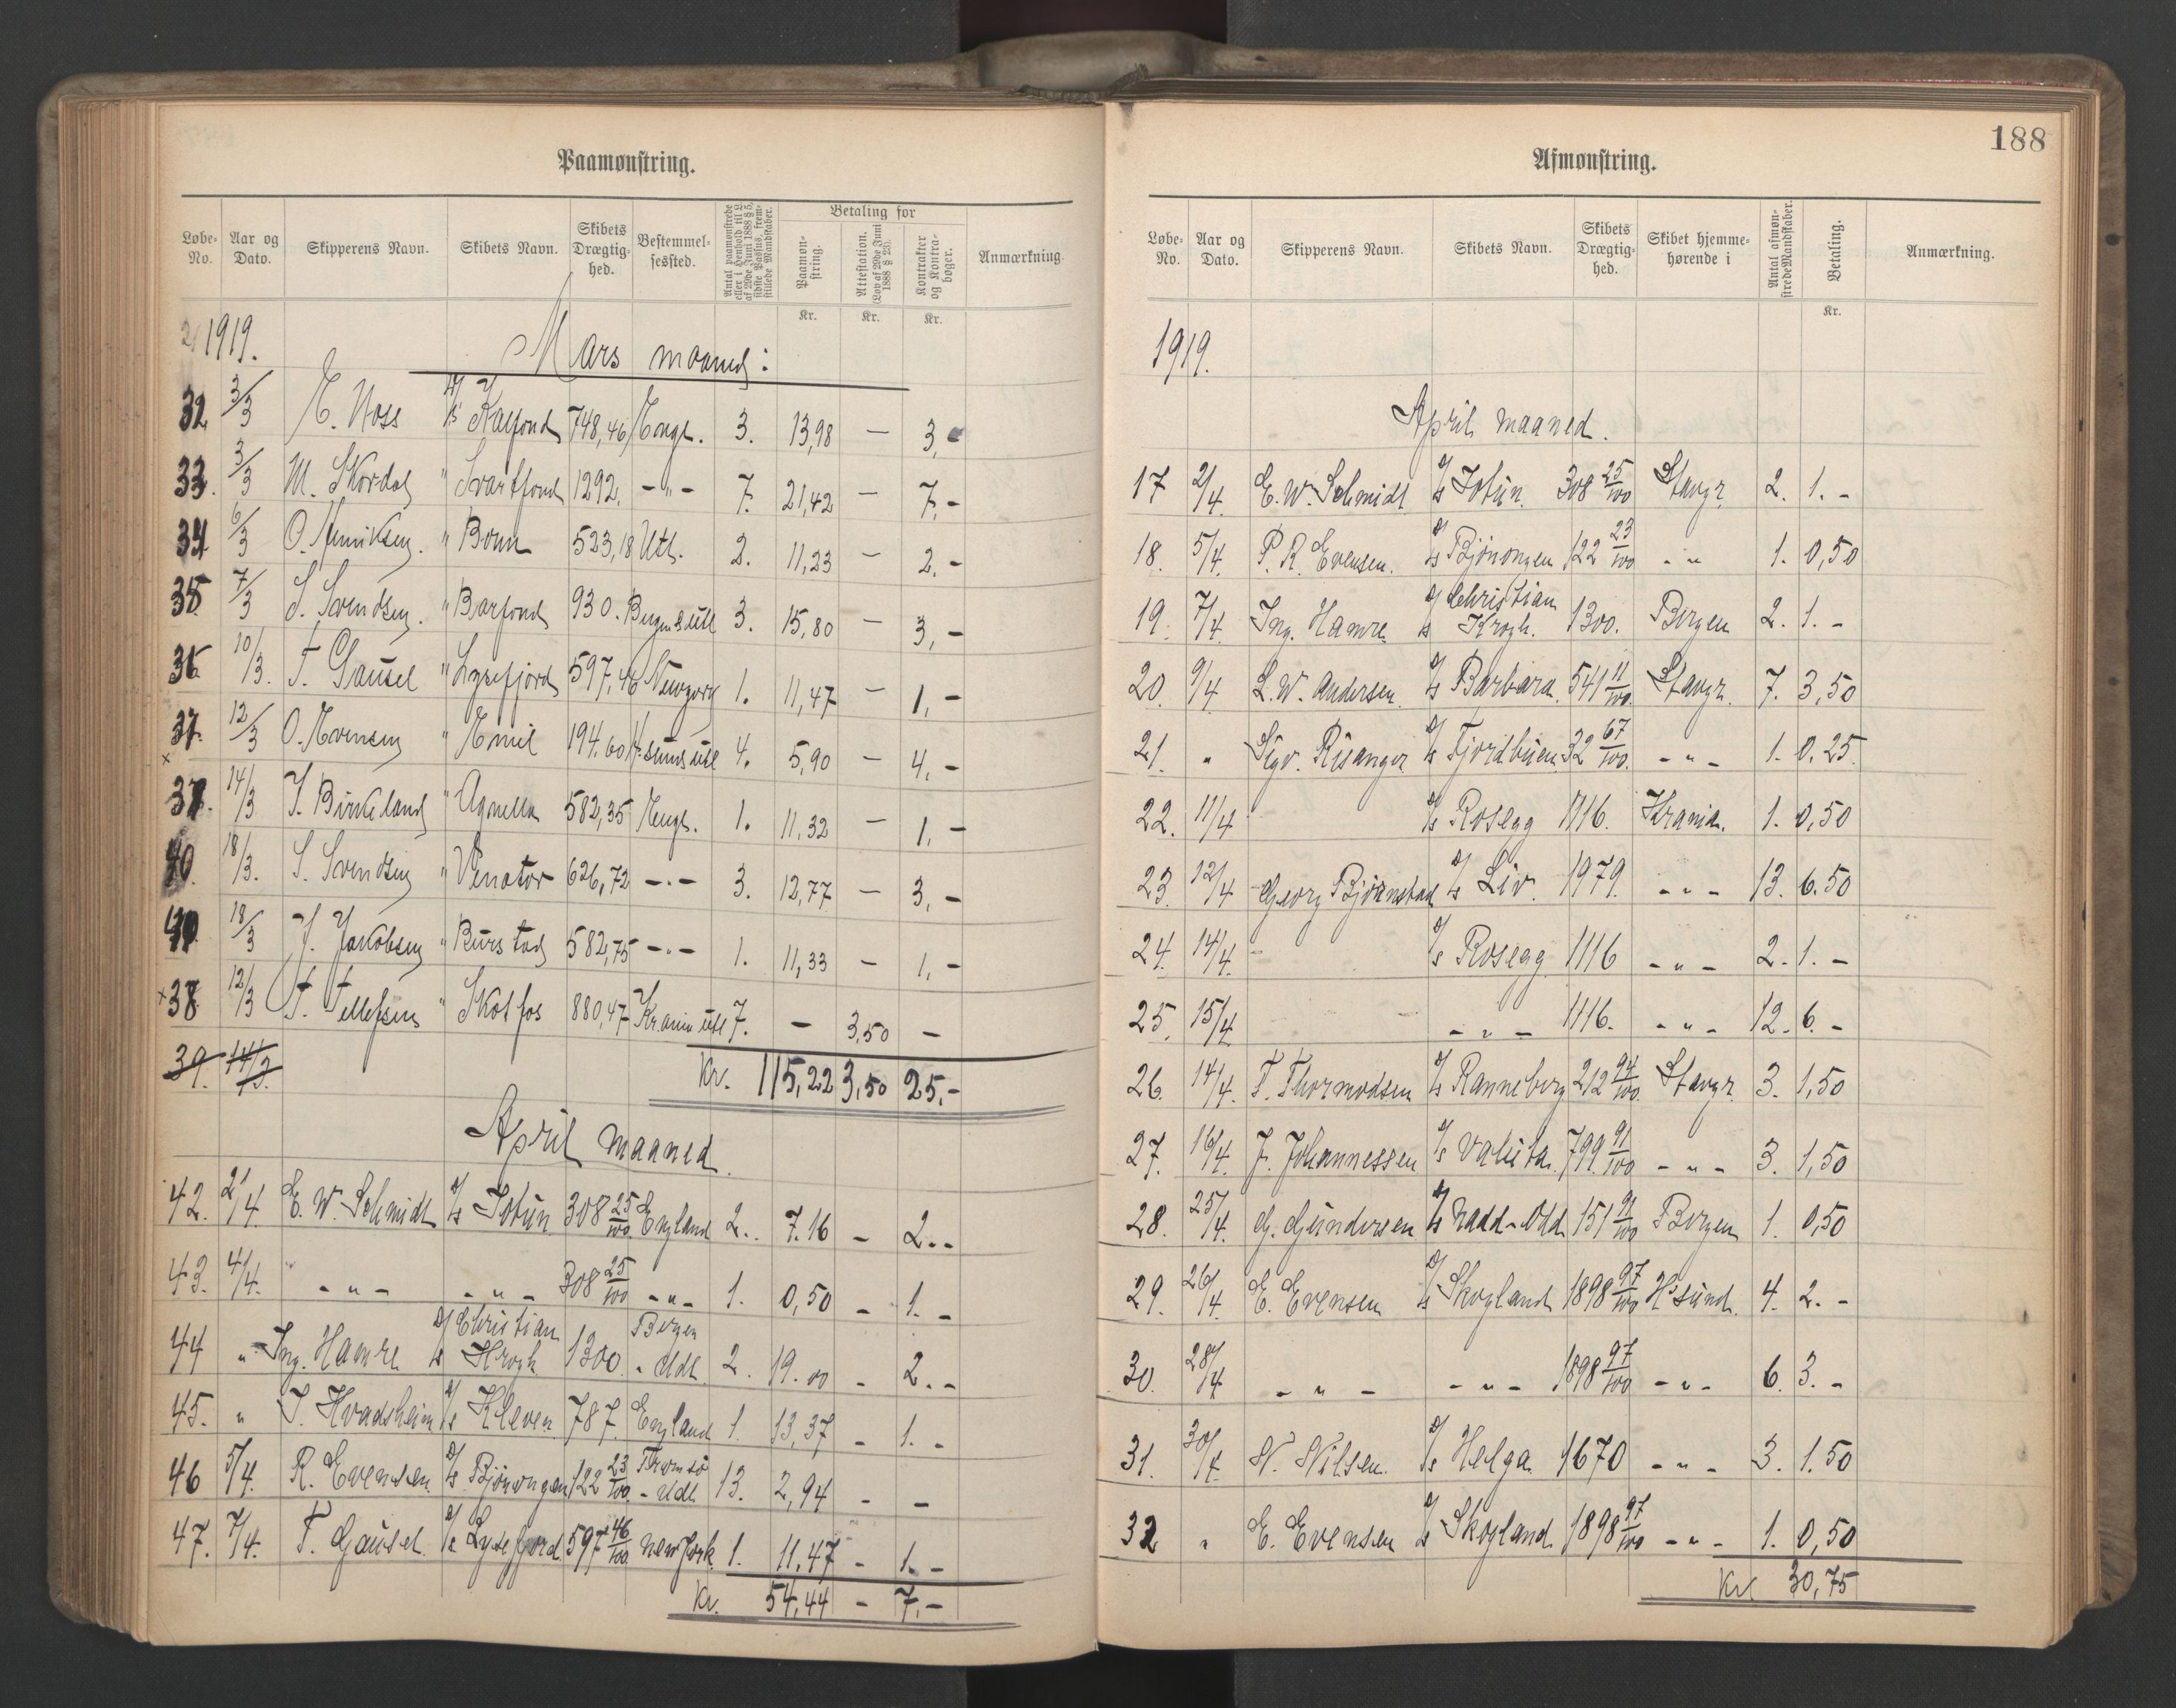 Paamønstring.
Løbe-No. Aar og Dato. Skipperens Navn. Skibets Navn. Skibets Drægtighed. Bestemmelsessted. Antal paamønstrede eller i Henhold til L. af 29de Juni 1888 § 5, sidste Passus, fremstillede Mandskaber. Betaling for Paamønstring. Attestation. (Lov af 29de Juni 1888 § 23). Kontrakter og Kontrabøger. Anmærkning
Kr. Kr. Kr.
1919. Mars maaned:
32 3/3 E. Noss D/S Kalfond 748,46 Engl. 3. 13,98 — 3,-
33. 3/3 M. Skordal " Svartfond 1292. -"- 7. 21,42 — 7,-
34 6/3 O. Henriksen. " Bonn 523,18 Utl. 2. 11,23 — 2.-
35 7/3 S. Svendsen. " Barfond 930. Bergen & utl 3. 15,80 — 3,-
36 10/3. T. Gausel " Lysefjord 597,46 Newyork 1. 11,47 — 1,-
37. 12/3 O. Evensen " Emil 194.60 H.sund utl 4. 5,90 — 4,-
14/3 J. Birkeland " Agnella 582,35 Engl. 1. 11,32 — 1,-
40. 18/3. S. Svendsen " Venator 626,72 -"- 3. 12,77 — 3,-
18/3 J. Jakobsen " Burstad 582,75 -"- 1. 11,33 — 1,-
x 38 12/3 T. Tellefsen " Skotfos 880,47 Kr.ania utl 7. — 3,50 —
39. 14/3.
Kr. 115,22 3,50 25,-
April maaned.
42. 2/4. E. W. Schmidt D/S Jotun 308 25/100 England 2.. 7.16 - 2.-
43. 4/4. -"- -"- 308 25/100 -"- 1. 0,50 - 1.-
44 " Ing. Hamre D/S Christian Krogh 1300. Bergen - Udl. 2. 19.00 - 2.-
45. " T. Kvadsheim D/S Kleven 787. England 1. 13,37 - 1.-
46 5/4. R. Evensen D/S Bjönongen 122 23/100 Thromsö - Udl 13. 2,94 - -
47. 7/4. T. Gausel. D/S Lysefjord 597 46/100 New York 1. 11,47 - 1.-
Kr. 54,44 - 7,-
188
Afmønstring.
Løbe-No. Aar og Dato. Skipperens Navn. Skibets Navn. Skibets Drægtighed. Skibet hjemmehørende i Antal afmønstrede Mandskaber. Betaling. Anmærkning.
Kr.
1919.
April maaned.
17 2/4. E. W. Schmidt D/S Jotun. 308 25/100 Stavgr. 2. 1.-
18. 5/4. P. R. Evensen. D/S Bjönongen 122 23/100 -"- 1. 0,50
19. 7/4. Ing. Hamre D/S Christian Krogh. 1300. Bergen 2. 1.-
20. 9/4 L. W. Andersen. D/S Barbara. 541 11/100. Stavgr. 7. 3,50
21. " Sigv. Risanger D/S Fjordbuen 32 67/100. -"- 1. 0.25.
22. 11/4 D/S Rosegg 1116. Krania. 1. 0,50
23. 12/4 Georg Bjönnstad D/S Liv. 1979. -"- 13. 6.50
24. 14/4. - D/S Rosegg 1116 -"- 2. 1.-
25. 15/4. -"- 1116. -"- 12. 6.-
26. 14/4. T. Thormodsen D/S Ranneberg 212 94/100. Stavgr. 3. 1,50
27. 16/4. J. Johannessen D/S Valuta. 799 91/100 -"- 3. 1,50
28. 25/4. G. Gundersen D/S Nadd-Odd. 151 91/100 Bergen 1. 0,50
29. 26/4 E. Evensen D/S Skogland 1898 97/100 H'sund. 4. 2.-
30. 28/4 -"- -"- 1898 97/100 -"- 6. 3.-
31. 30/4. N. Nilsen. D/S Helga. 1670 -"- 3. 1.50
32 " E. Evensen D/S Skogland. 1898 97/100 -"- 1. 0,50
Kr. 30,75